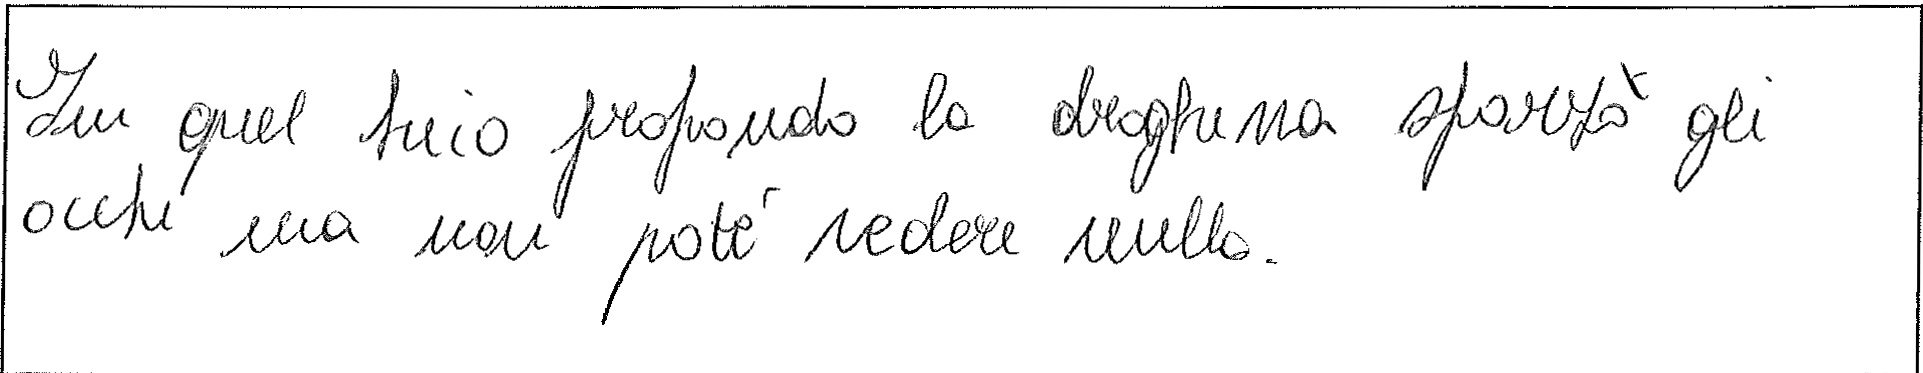 In quel buio profondo la sforzò gli
occhi ma non poté vedere nulla.